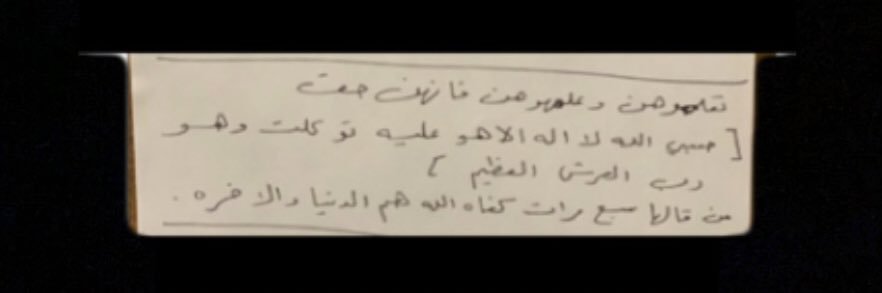 تعلموهن وعلموهن فانهن حق
[ حسبي الله لا اله الا هو عليه توكلت وهو
رب العرش العظيم ]
من قالها سبع مرات كفاه الله هم الدنيا والاخره .